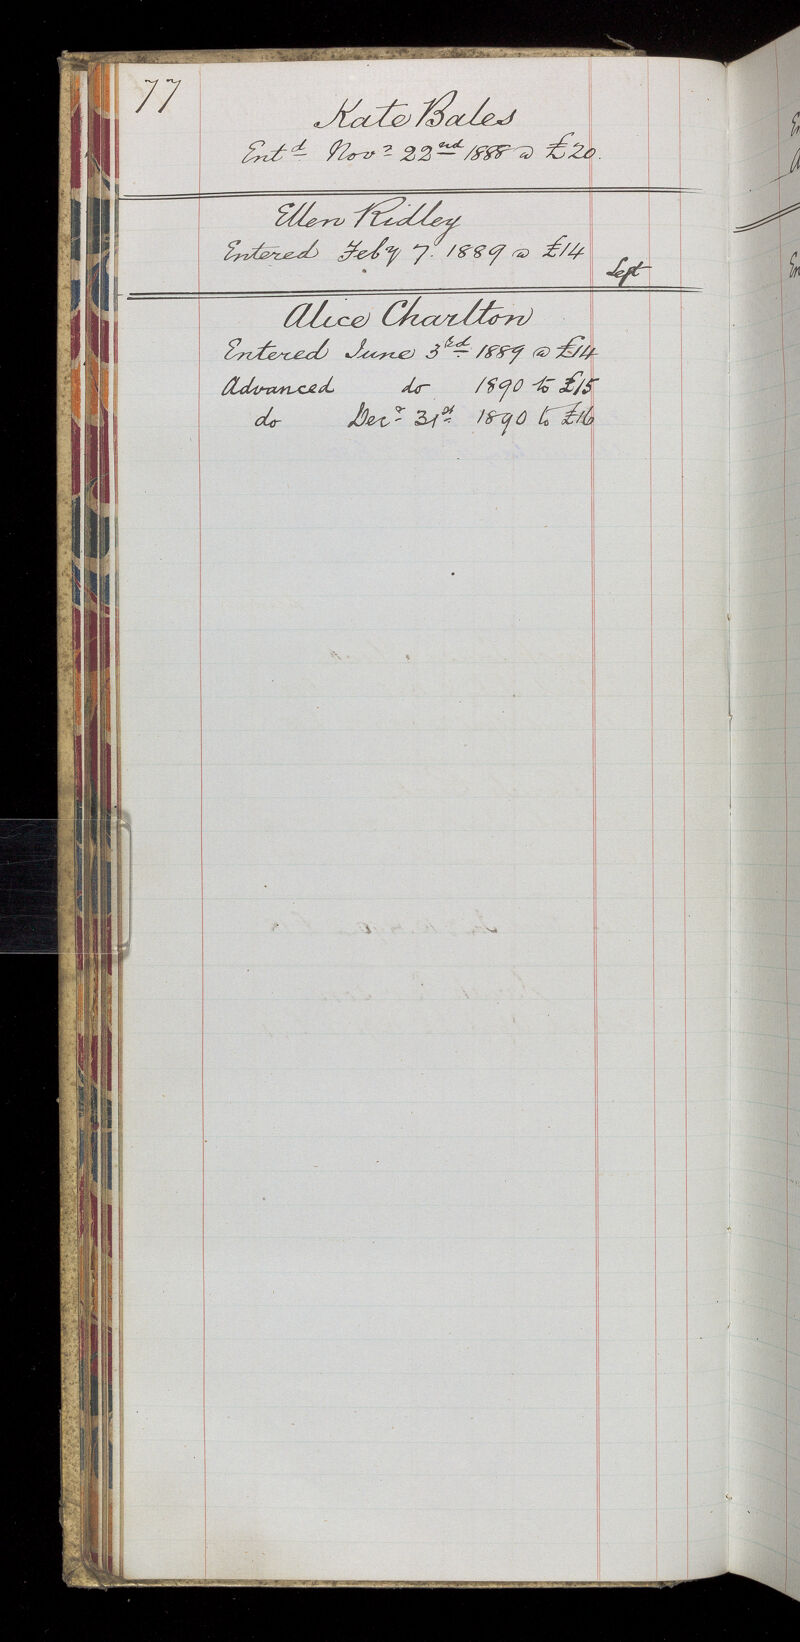 77
Kate Bales
Entd Novr 22nd 1888 @ £20.
Ellen Ridley
Entered Feby 7. 1889 @ £14
Left
Alice Charlton
Entered June 3rd 1889 @ £14
Advanced do 1890 to £15
do Decr 31st 1890 to £16